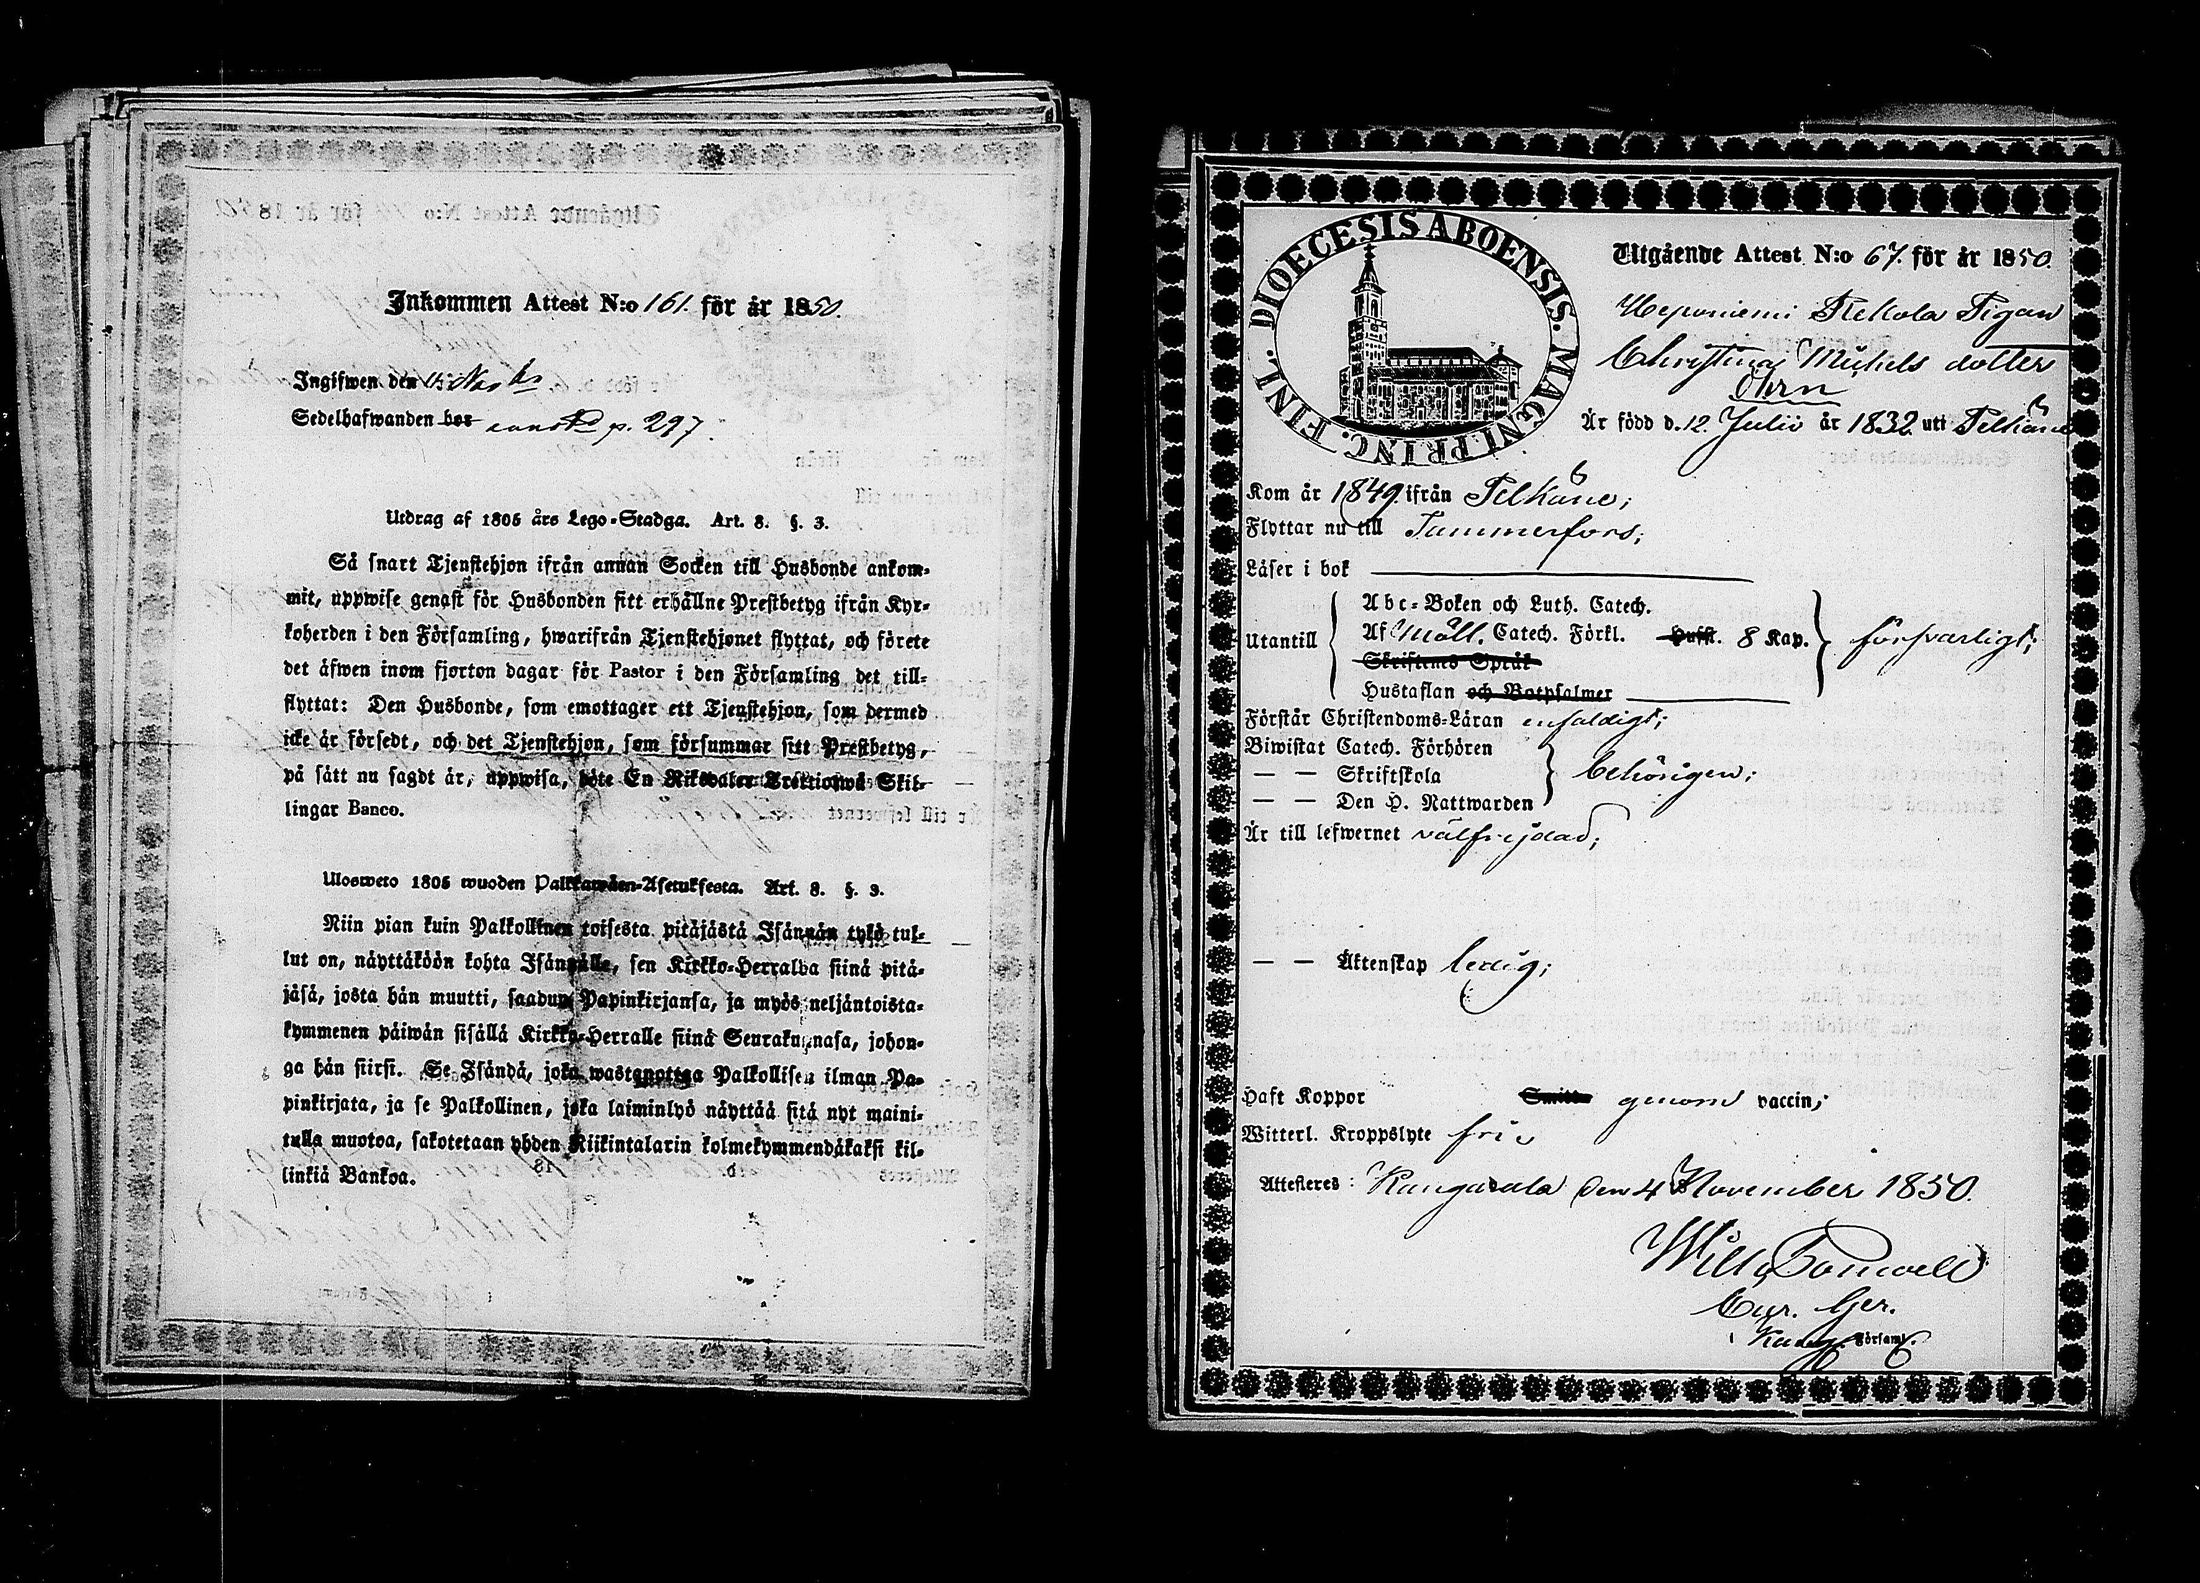 Inkommen Attest N:o 161. för år 1850.
Ingifwen den
Sedelhafwanden bor p. 297.
Utdrag af 1805 års Lego-Stadga. Art. 8. §. 3.
Så snart Tjenstehjon ifrån annan Socken till Husbonde ankom-
mit, uppwise genast för Husbonden sitt erhållne Prestbetyg ifrån Kyr-
koherden i den Församling, hwarifrån Tjenstehjonet flyttat, och förete
det äfwen inom fjorton dagar för Pastor i den Församling det till-
flyttat: Den Husbonde, som emottager ett Tjenstehjon, som dermed
icke är försedt, och det Tjenstehjon, som försummar sitt Prestbetyg,
på sätt nu sagdt är, uppwisa, böte En Riksdaler Trettiotwå Skil-
lingar Banco.
Ulosweto 1805 wuoden Palkkawäen-Asetuksesta. Art. 8. §. 3.
Niin pian kuin Palkollinen toisesta pitäjästä Isännän tykö tul-
lut on, näyttäköön kohta Isännälle, sen Kirkko-Herralda siinä pitä-
jäsä, josta hän muutti, saadun Papinkirjansa, ja myös neljäntoista-
kymmenen päiwän sisällä Kirkko-Herralle siinä Seurakunnasa, johon-
ga hän siirsi. Se Isändä, joka wastanottaa Palkollisen ilman Pa-
pinkirjata, ja se Palkollinen, joka laiminlyö näyttää sitä nyt maini-
tulla muotoa, sakotetaan yhden Riikintalarin kolmekymmendäkaksi kil-
linkiä Bankoa.
DIOECESIS ABOENSIS. MAGNI. PRINC. FINL.
Utgående Attest N:o 67. för år 1850.
Heponiemi Pekola Pigan
Christina Michels dotter
Öhrn
Är född d. 12 Julii år 1832. uti Pelkäne
Kom år 1849. ifrån Pelkäne;
Flyttar nu till Tammerfors;
Läser i bok
Utantill
Abc-Boken och Luth. Catech.
Af Möll. Catech. Förkl. Hufst. 8 Kap. försvarligt;
Skriftenes Språk
Hustaflan och Botpsalmer
Förstår Christendoms-Läran enfaldigt;
Biwistat Catech. Förhören
— — Skriftskola behörigen;
— — Den H. Nattwarden
Är till lefwernet välfrejdad;
— — Äktenskap ledig;
Haft Koppor Smitt genom vaccin;
Witterl. Kroppslyte fri
Attesteres: Kangasala den 4 November 1850.
Cur. Ger.
i Kang. Församl.